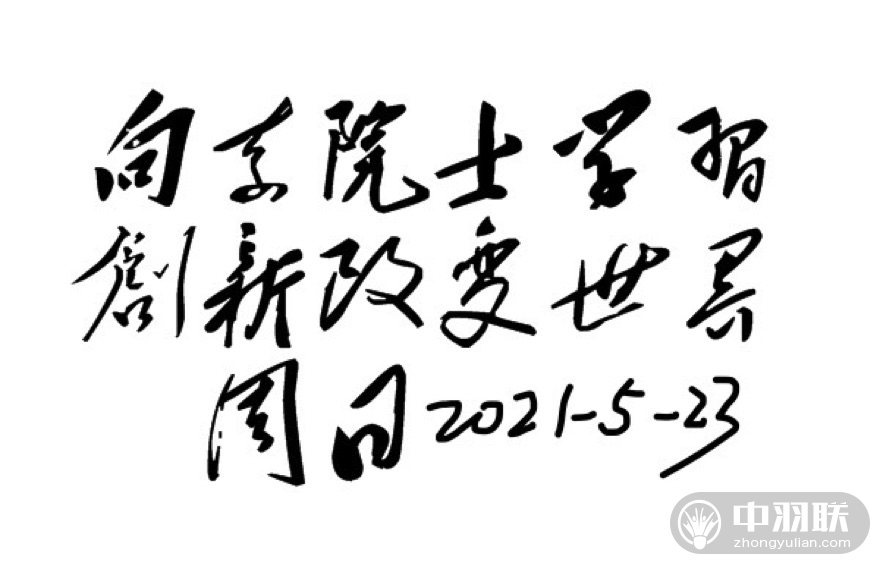 向袁院士学習
創新改变世界
周日2021-5-23
中羽联
zhongyulian.com